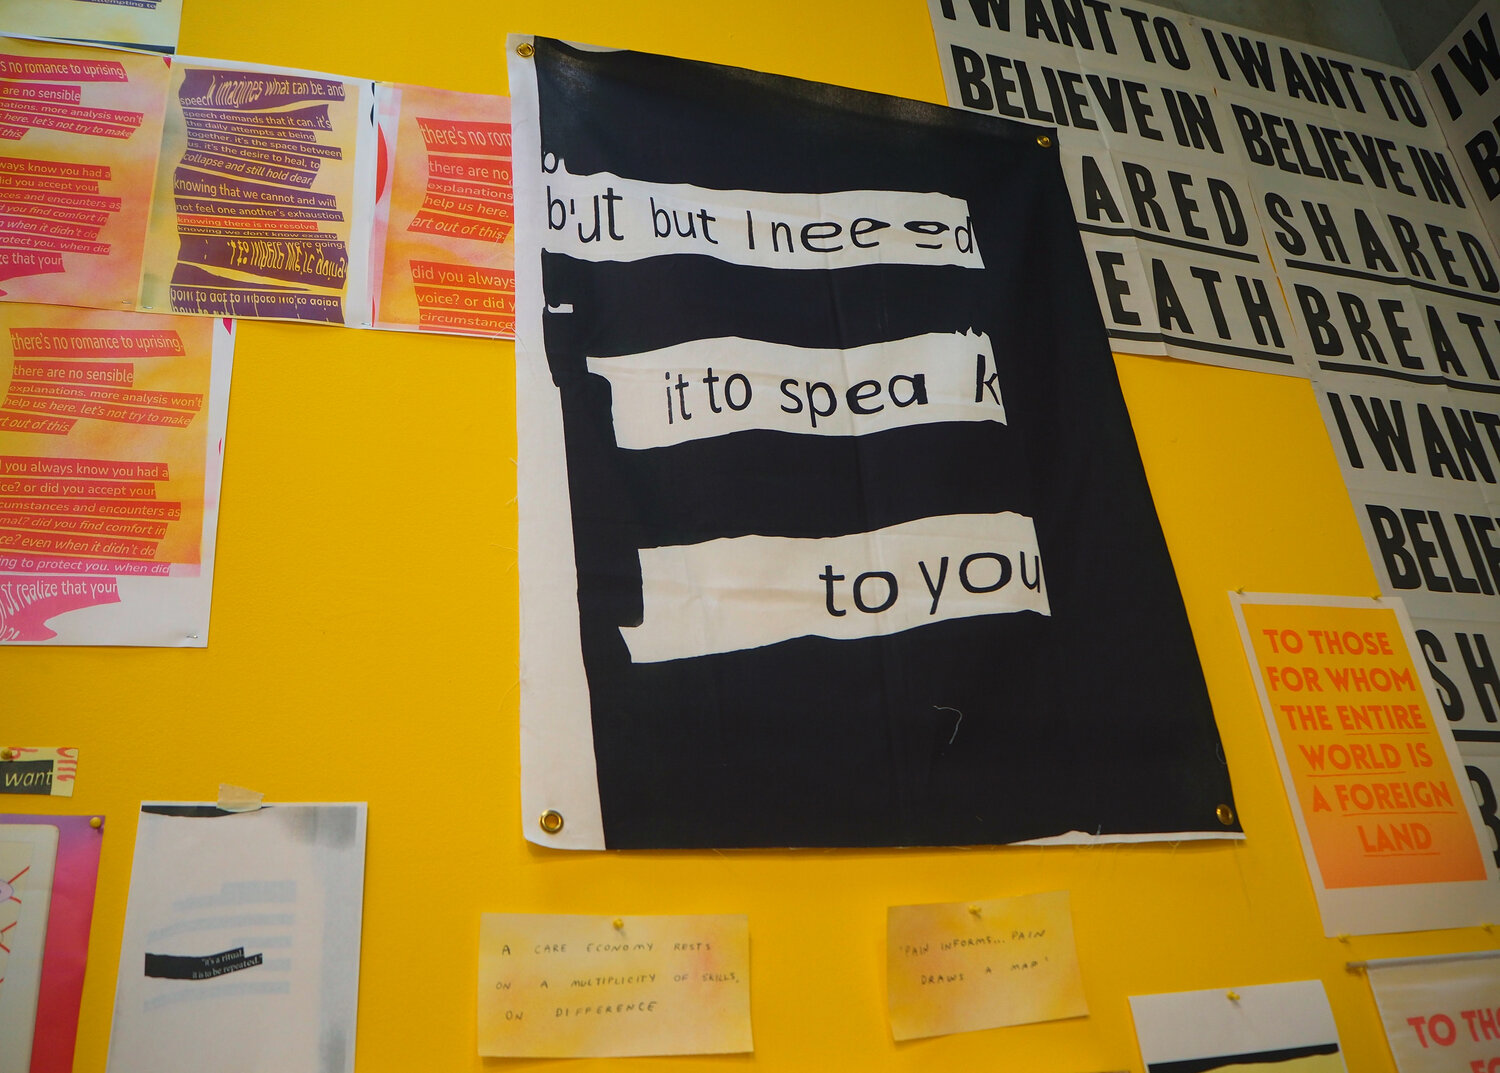 s no romance to uprising.
are no sensible
nations. more analysis won't
s here. let's not try to make
this.
ways know you had a
did you accept your
ces and encounters as
d you find comfort in
when it didn't do
rotect you. when did
ze that your
speech imagines what can be. and
speech demands that it can. it's
the daily attempts at being
together. it's the space between
us. it's the desire to heal, to
collapse and still hold dear
knowing that we cannot and will
not feel one another's exhaustion
knowing there is no resolve.
knowing we don't know exactly
we're going.
there's no rom
there are no
explanations
help us here.
art out of this.
did you always
voice? or did y
circumstance
there's no romance to uprising.
there are no sensible
explanations. more analysis won't
help us here. let's not try to make
rt out of this.
you always know you had a
ice? or did you accept your
cumstances and encounters as
mal? did you find comfort in
ce? even when it didn't do
ng to protect you. when did
st realize that your
but but I need
it to speak
to you
I WANT TO
BELIEVE IN
ARED
EATH
I WANT TO
BELIEVE IN
SHARED
BREAT
I WANT
BELIE
SH
I W
TO THOSE
FOR WHOM
THE ENTIRE
WORLD IS
A FOREIGN
LAND
want
"it's a ritual.
it is to be repeated."
A CARE ECONOMY RESTS
ON A MULTIPLICITY OF SKILLS,
ON DIFFERENCE
"PAIN INFORMS... PAIN
DRAWS A MAP"
TO TH